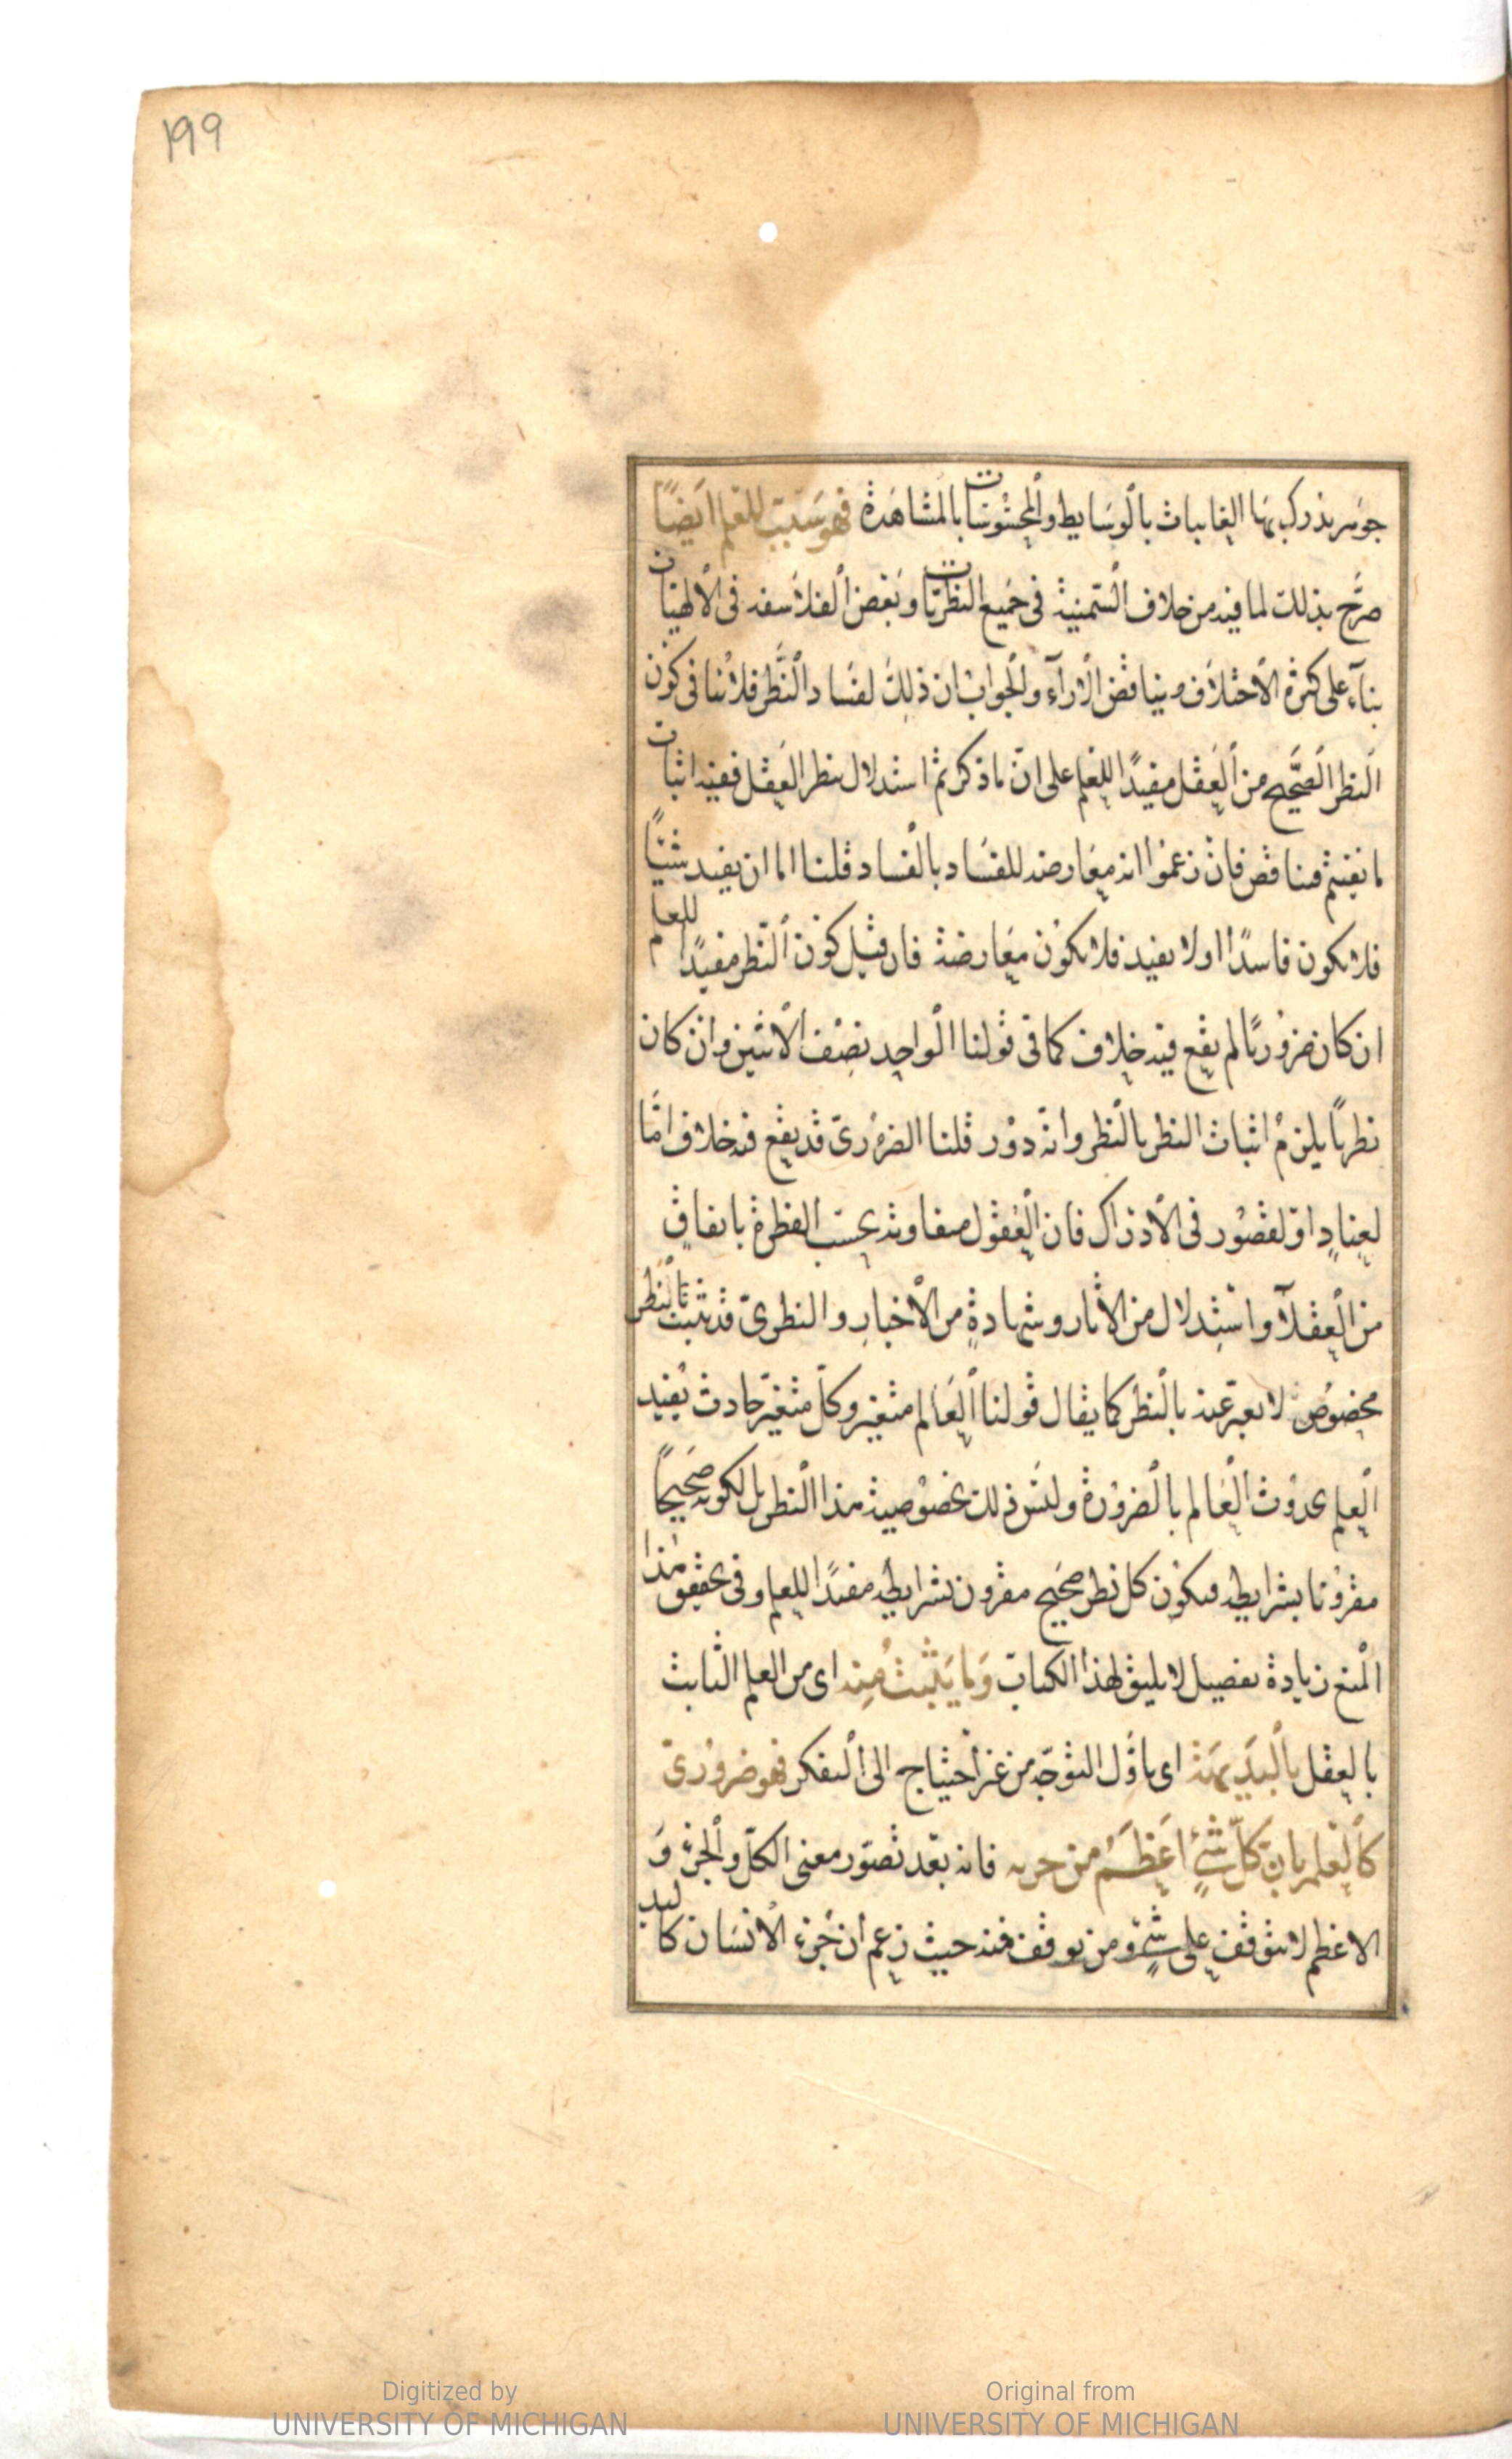 199
جوهر يدرك بها الغايبات بالوسايط والمحسوسات بالمشاهدة فهو سبب للعلم ايضا
صرح بذلك لما فيه من خلاف السمنية في جميع النظريات وبعض الفلاسفه في الالهيات
بناء على كثرة الاختلاف وتناقض الاراء والجواب ان ذلك لفساد النظر فلا ينافي كون
النظر الصحيح من العقل مفيدا للعلم على ان ما ذكرتم استدلال بنظر العقل ففيه اثبات
ما نفيتم فتناقض فان زعموا انه معارضه للفساد بالفساد قلنا اما ان يفيد شيئا
فلا يكون فاسدا او لا يفيد فلا يكون معارضة فان قيل كون النظر مفيدا للعلم
ان كان ضروريا لم يقع فيه خلاف كما في قولنا الواحد نصف الاثنين وان كان
نظريا يلزم اثبات النظر بالنظر وانه دور قلنا الضروري قد يقع فيه خلاف اما
لعناد او لقصور في الادراك فان العقول متفاوته بحسب الفطرة باتفاق
من العقلآ واستدلال من الاثار وشهادة من الاخبار والنظري قد يثبت بالنظر
مخصوص لا يعبر عنه بالنظر كما يقال قولنا العالم متغير وكل متغير حادث يفيد
العلم بحدوث العالم بالضرورة وليس ذلك بخصوصية هذا النظر بل لكونه صحيحا
مقرونا بشرايطه فيكون كل نظر صحيح مقرون بشرايطه مفيدا للعلم وفي تحقيق هذا
المنع زيادة تفصيل لا يليق لهذا الكتاب وما يثبت منه اي من العلم الثابت
بالعقل بالبديهة اي باول التوجه من غير احتياج الى التفكر فهو ضروري
كالعلم بان كل شئ اعظم من جزءه فانه بعد تصور معنى الكل والجزء و
الاعظم لا يتوقف على شئ ومن توقف فيه حيث زعم ان جزء الانسان كاليد
Digitized by
UNIVERSITY OF MICHIGAN
Original from
UNIVERSITY OF MICHIGAN